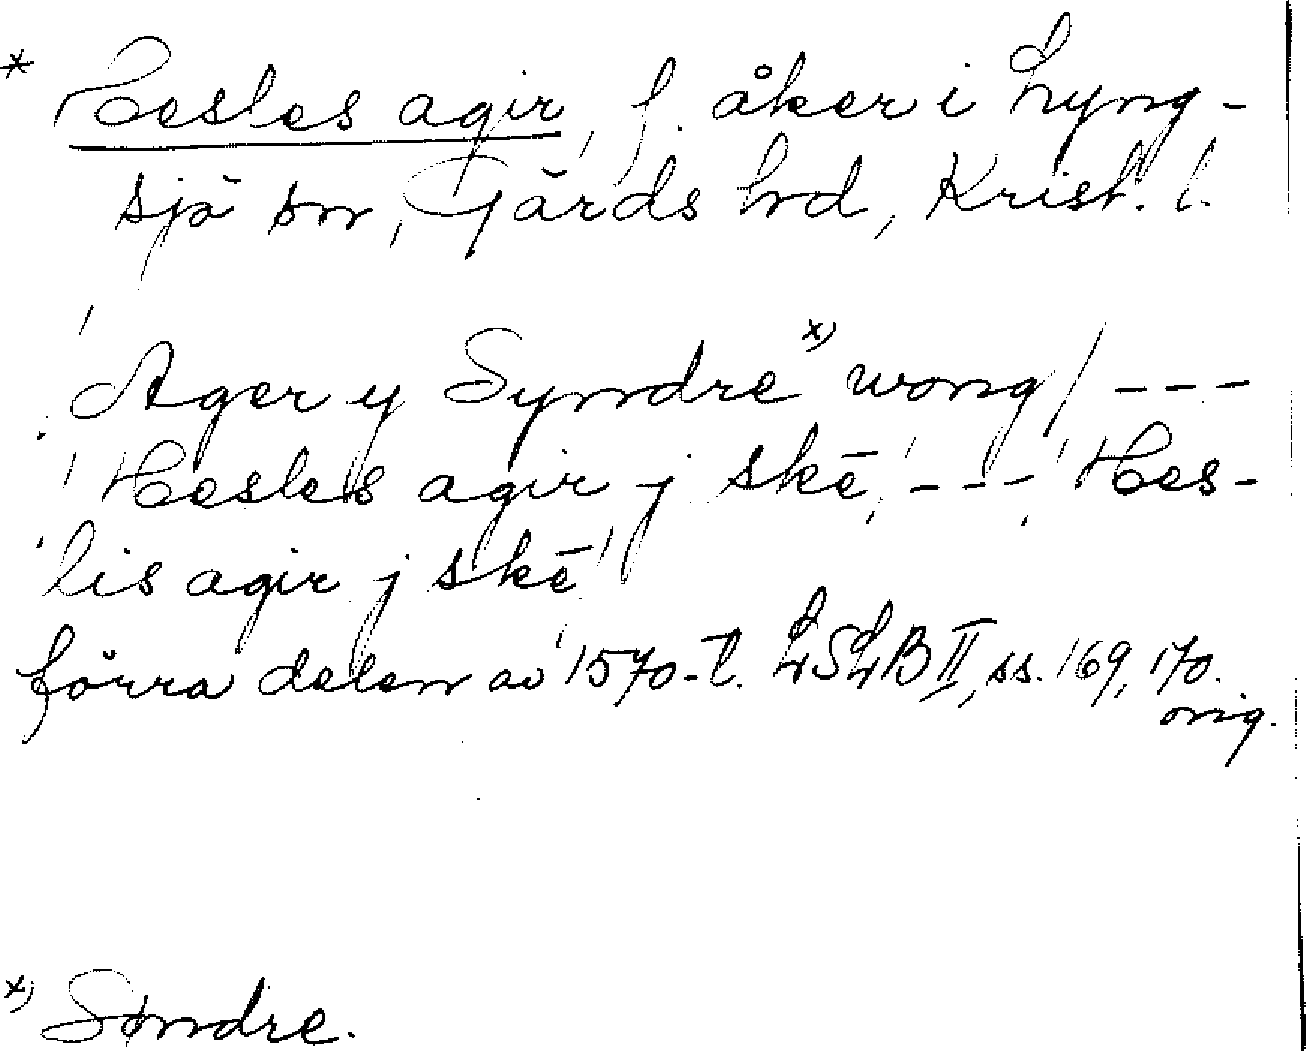 * Hesles agir, f. åker i Lyng-
sjö sn, Gärds hd, Krist. l.
'Ager y Syndre x) wong / ---
'Hesles agir j skē,' ---, 'Hes-
lis agir j skē'
förra delen av 1570-t. LSLB II, ss. 169, 170.
orig.
x) Søndre.